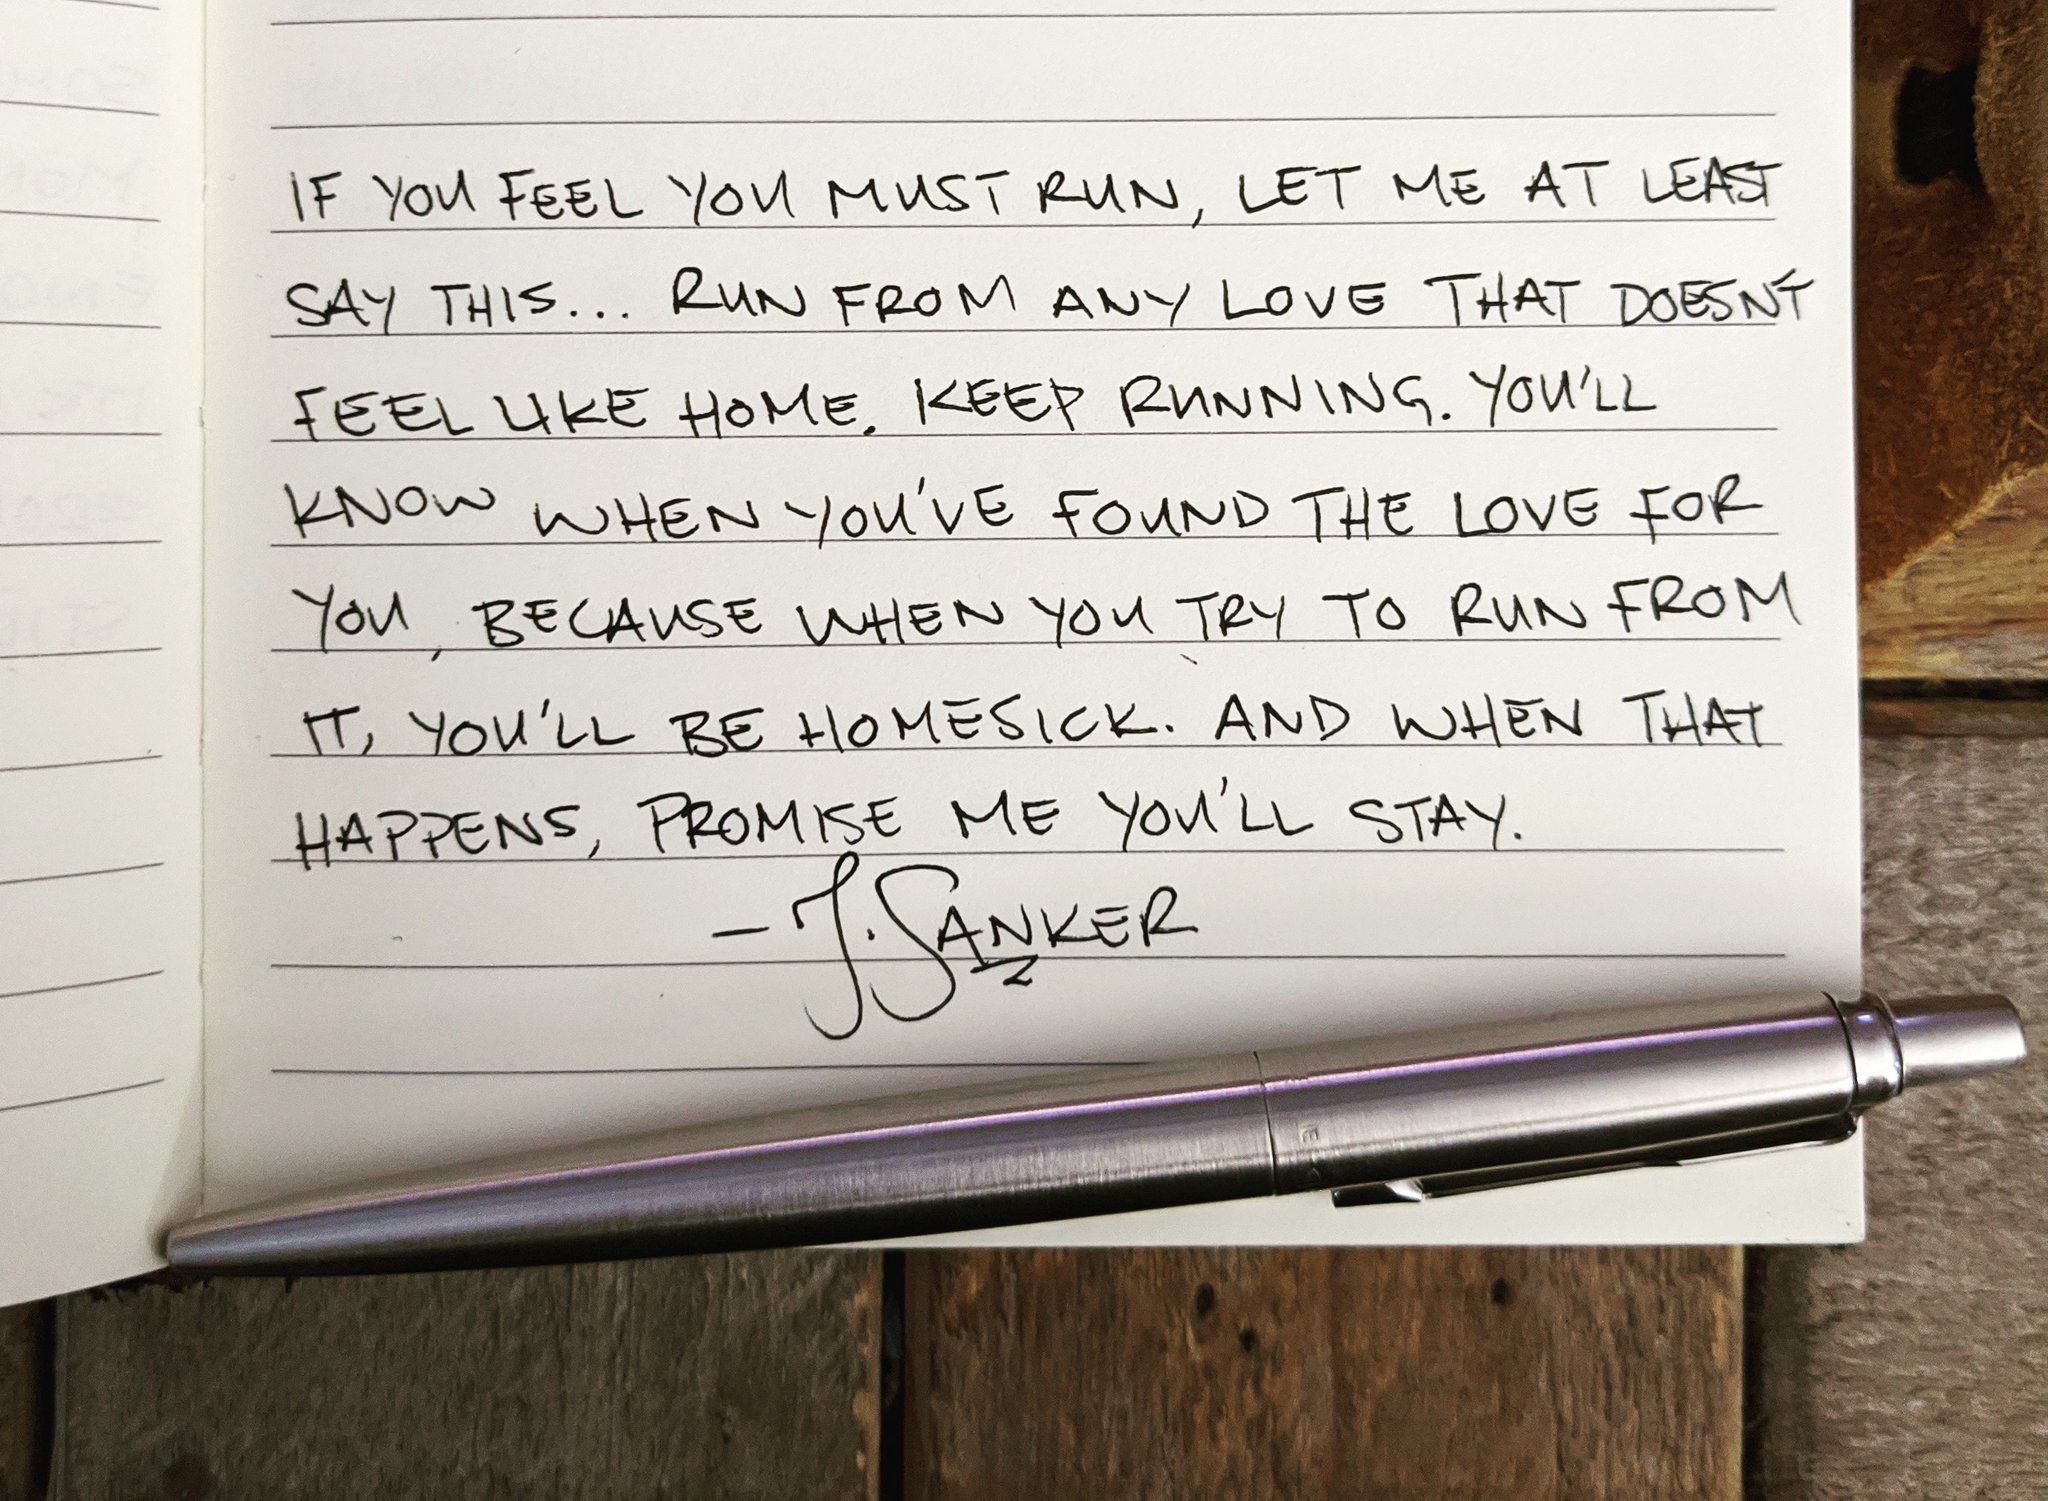 IF YOU FEEL YOU MUST RUN, LET ME AT LEAST
SAY THIS... RUN FROM ANY LOVE THAT DOESN'T
FEEL LIKE HOME. KEEP RUNNING. YOU'LL
KNOW WHEN YOU'VE FOUND THE LOVE FOR
YOU, BECAUSE WHEN YOU TRY TO RUN FROM
IT, YOU'LL BE HOMESICK. AND WHEN THAT
HAPPENS, PROMISE ME YOU'LL STAY.
- J. SANKER